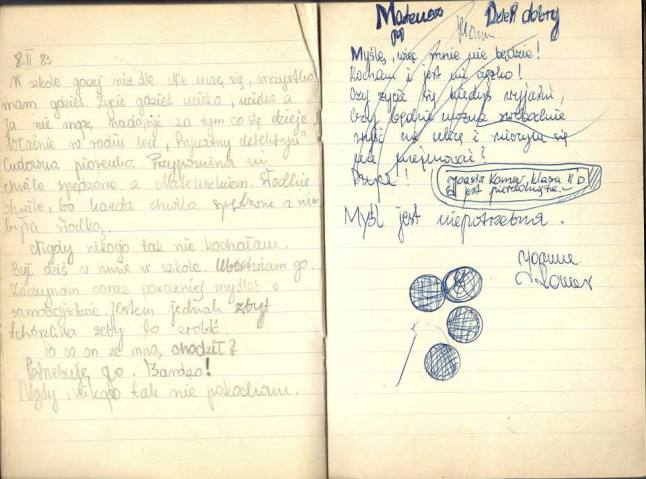 8.II 83
W szkole gorzej niż źle. Nie uczę się, wszystko
mam gdzieś. Życie gdzieś ucieka, ucieka a
ja nie mogę nadążyć za tym co się dzieje
Właśnie w radiu leci „Prywatny detektyw"
Cudowna piosenka. Przypomina mi
chwile spędzone z Mateuszkiem. Słodkie
chwile, bo każda chwila spędzona z nim
była słodka.
Nigdy nikogo tak nie kochałam.
Był dziś u mnie w szkole. Widziałam go.
Zaczynam coraz poważniej myśleć o
samobójstwie. Jestem jednak zbyt
tchórzliwa żeby to zrobić.
Po co on ze mną chodził?
Potrzebuję go. Bardzo!
Nigdy, nikogo tak nie pokocham.
Mateusz Dzień dobry
Myślę, więc mnie nie będzie!
Kocham i jest mi ciężko!
Czy życie się kiedyś wyjaśni,
Czy będzie można swobodnie
wyjść na ulicę i niczym się
nie przejmować?
Dupa!
Joasia Komar, klasa II D
jest pierdolnięta.
Myśl jest niepotrzebna.